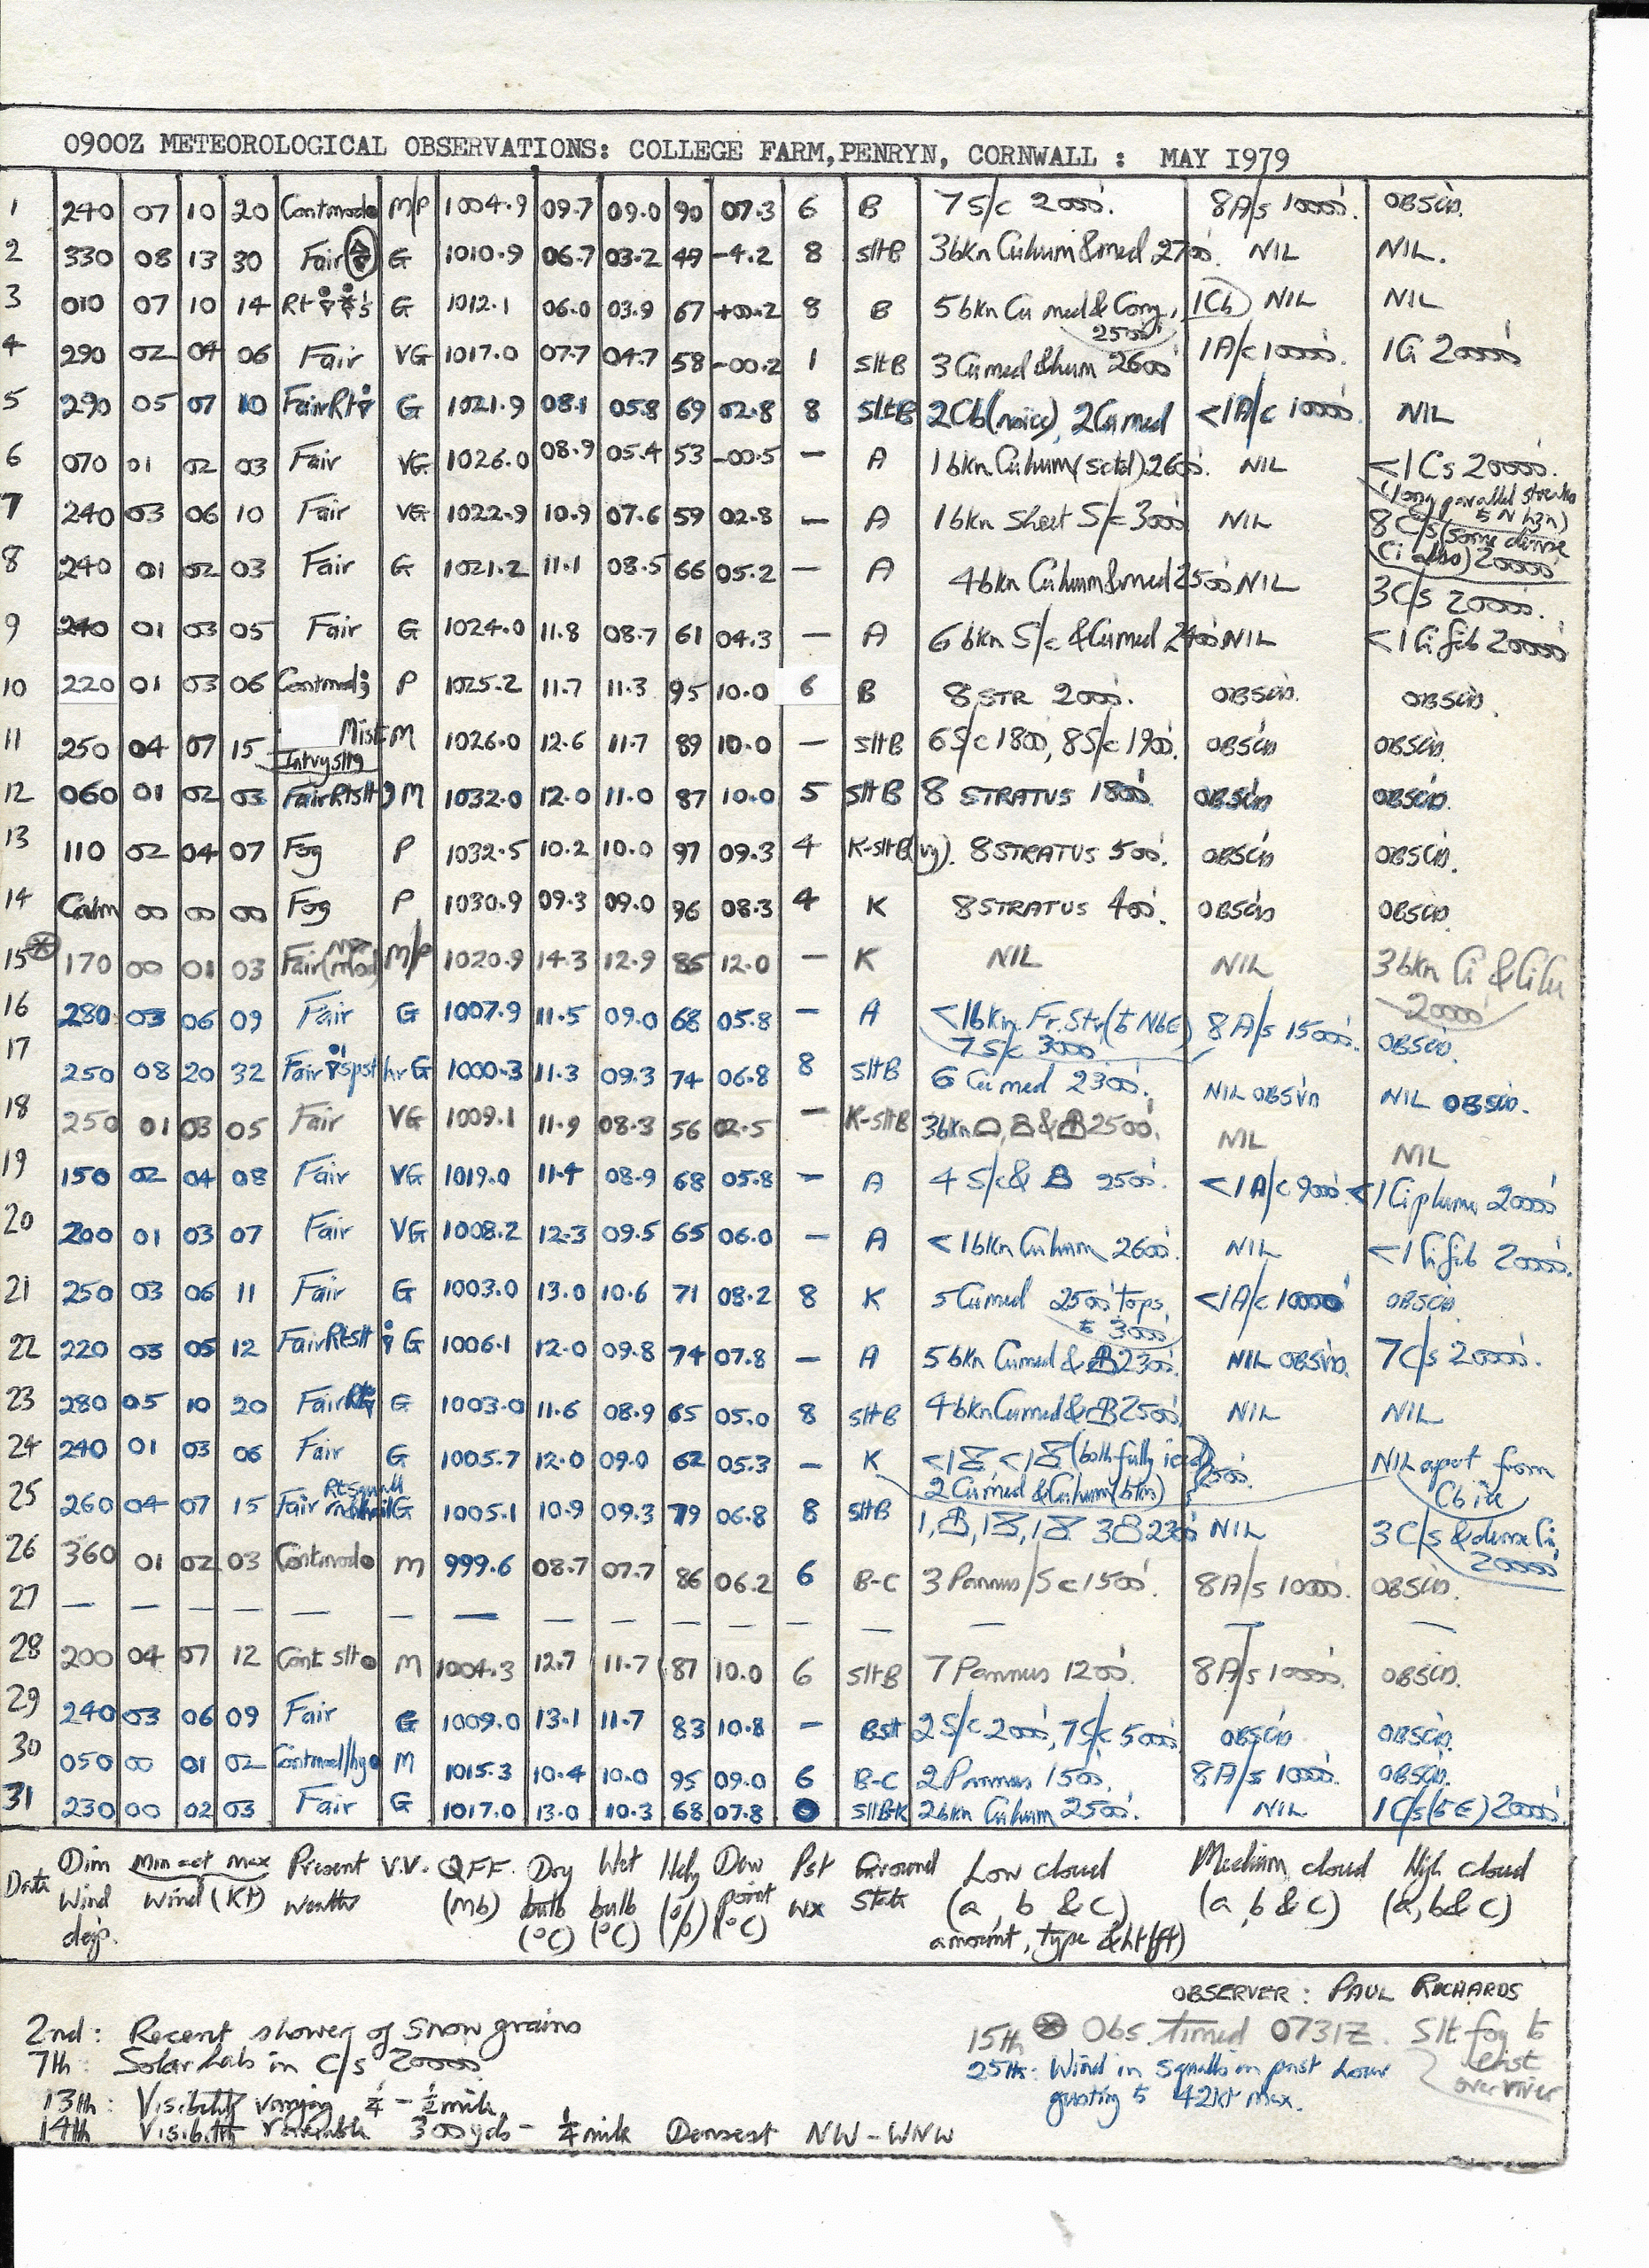 0900Z METEOROLOGICAL OBSERVATIONS: COLLEGE FARM,PENRYN, CORNWALL : MAY I979
1 240 07 10 20 Contmod M/P 1004.9 09.7 09.0 90 07.3 6 B 7 S/c 2000'. 8 A/s 10000'. OBSCD.
2 330 08 13 30 Fair G 1010.9 06.7 03.2 49 -4.2 8 SltB 3bkn Cuhum & med 2700'. NIL NIL.
3 010 07 10 14 Rt G 1012.1 06.0 03.9 67 +00.2 8 B 5 bkn Cu med & Cong, 1Cb NIL NIL
2500'
4 290 02 04 06 Fair VG 1017.0 07.7 04.7 58 -00.2 1 SltB 3 Cumed & hum 2600' 1A/c 10000'. 1Ci 20000'
5 290 05 07 10 FairRt G 1021.9 08.1 05.8 69 02.8 8 SltB 2Cb(noice), 2Cumed <1A/c 10000'. NIL
6 070 01 02 03 Fair VG 1026.0 08.9 05.4 53 -00.5 — A 1 bkn Cuhum (sctd) 2600'. NIL <1 Cs 20000'.
(long parallel streaks to N hzn)
7 240 03 06 10 Fair VG 1022.9 10.9 07.6 59 02.8 — A 1 bkn sheet S/c 3000' NIL 8 C/s (some dense
Ci also) 20000'
8 240 01 02 03 Fair G 1021.2 11.1 08.5 66 05.2 — A 4bkn Cuhum & med 2500' NIL 3C/s 20000'.
9 240 01 03 05 Fair G 1024.0 11.8 08.7 61 04.3 — A 6 bkn S/c & Cumed 2400' NIL <1 Ci fib 20000'
10 220 01 03 06 Contmod P 1025.2 11.7 11.3 95 10.0 6 B 8 STR 2000'. OBSCD. OBSCD.
11 250 04 07 15 Mist M 1026.0 12.6 11.7 89 10.0 — SltB 6S/c 1800', 8S/c 1900'. OBSCD OBSCD.
Intvyslt9
12 060 01 02 03 FairRtslt9 M 1032.0 12.0 11.0 87 10.0 5 SltB 8 STRATUS 1800'. OBSCD OBSCD.
13 110 02 04 07 Fog P 1032.5 10.2 10.0 97 09.3 4 K-SltB(vy). 8 STRATUS 500'. OBSCD OBSCD.
14 Calm 00 00 00 Fog P 1030.9 09.3 09.0 96 08.3 4 K 8 STRATUS 400'. OBSCD OBSCD.
15 170 00 01 03 Fair M/P 1020.9 14.3 12.9 85 12.0 — K NIL NIL 3 bkn Ci & CiCu
20000'
16 280 03 06 09 Fair G 1007.9 11.5 09.0 68 05.8 — A <1bkn Fr.Str (to NbE) 8 A/s 15000'. OBSCD.
7 S/c 3000'
17 250 08 20 32 Fair pst hr G 1000.3 11.3 09.3 74 06.8 8 SltB 6 Cu med 2300'. NIL OBSVD NIL OBSCD.
18 250 01 03 05 Fair VG 1009.1 11.9 08.3 56 02.5 — K-SltB 3bkn & 2500'. NIL NIL
19 150 02 04 08 Fair VG 1019.0 11.4 08.9 68 05.8 — A 4 S/c & 2500'. <1 A/c 9000'. <1 Ci plumes 20000'
20 200 01 03 07 Fair VG 1008.2 12.3 09.5 65 06.0 — A <1 bkn Cuhum 2600'. NIL <1 Ci fib 20000'.
21 250 03 06 11 Fair G 1003.0 13.0 10.6 71 08.2 8 K 5 Cumed 2500' tops <1A/c 10000' OBSCD.
to 3000'
22 220 03 05 12 FairRtslt G 1006.1 12.0 09.8 74 07.8 — A 5 bkn Cumed & 2300'. NIL OBSVD. 7 C/s 20000'.
23 280 05 10 20 Fair G 1003.0 11.6 08.9 65 05.0 8 SltB 4 bkn Cumed & 2500' NIL NIL
24 240 01 03 06 Fair G 1005.7 12.0 09.0 62 05.3 — K <1 <1 (both fully iced) 2500'. NIL apart from
2 Cumed & Cuhum (bkn) Cb ice
25 260 04 07 15 Fair Rtsquall G 1005.1 10.9 09.3 79 06.8 8 SltB 1, 1, 1 3 2300' NIL 3 C/s & dense Ci,
20000'
26 360 01 02 03 Contmod M 999.6 08.7 07.7 86 06.2 6 B-C 3 Pannus/Sc 1500'. 8A/s 10000'. OBSCD.
27 — — — — — — — — — — — — — — — —
28 200 04 07 12 Cont slt M 1004.3 12.7 11.7 87 10.0 6 SltB 7 Pannus 1200'. 8A/s 10000'. OBSCD.
29 240 03 06 09 Fair G 1009.0 13.1 11.7 83 10.8 — Bslt 2 S/c 2000', 7S/c 5000' OBSCD OBSCD.
30 050 00 01 02 Contmod/hy M 1015.3 10.4 10.0 95 09.0 6 B-C 2 Pannus 1500'. 8A/s 10000'. OBSCD.
31 230 00 02 03 Fair G 1017.0 13.0 10.3 68 07.8 0 SltB-K 2bkn Cuhum 2500'. NIL 1 C/s (to E) 20000'.
Date Dirn Min act max Present V.V. QFF. Dry Wet Hdy Dew Pst Ground Low cloud Medium cloud High cloud
Wind wind (Kt) weather (Mb) bulb bulb (%) point wx State (a, b & c) (a, b & c) (a, b & c)
deg. (°C) (°C) (°C) amount, type & ht (ft)
OBSERVER : PAUL RICHARDS
2nd : Recent shower of Snow grains
7th : Solar halo in C/s 20000'
13th : Visibility varying ¼ - ½ mile.
14th Visibility variable 300yds - ¼ mile Densest NW - WNW
15th Obs. timed 0731Z. Slt fog to
east
over river
25th: Wind in squalls in past hour
gusting to 42kt max.